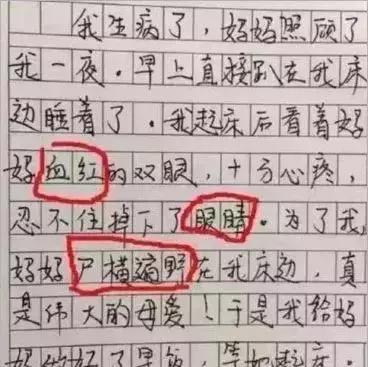 我生病了，妈妈照顾了
我一夜。早上直接趴在我床
边睡着了。我起床后看着妈
妈血红的双眼，十分心疼，
忍不住掉下了眼睛。为了我，
妈妈尸横遍野在我床边，真
是伟大的母爱！于是我给妈
妈做好了早饭，等她起床。